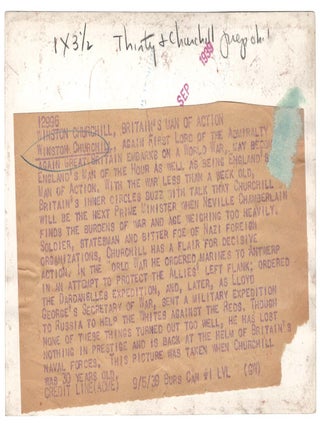 1 X 3 1/2 Thirty & Churchill
SEP 1939
12996
WINSTON CHURCHILL, BRITAIN'S MAN OF ACTION
WINSTON CHURCHILL, AGAIN FIRST LORD OF THE ADMIRALTY
AGAIN GREAT BRITAIN EMBARKS ON A WORLD WAR, MAY BECOME
ENGLAND'S MAN OF THE HOUR AS WELL AS BEING ENGLAND'S
MAN OF ACTION. WITH THE WAR LESS THAN A WEEK OLD,
BRITAIN'S INNER CIRCLES BUZZ WITH TALK THAT CHURCHILL
WILL BE THE NEXT PRIME MINISTER WHEN NEVILLE CHAMBERLAIN
FINDS THE BURDENS OF WAR AND AGE WEIGHING TOO HEAVILY.
SOLDIER, STATESMAN AND BITTER FOE OF NAZI FOREIGN
ORGANIZATIONS, CHURCHILL HAS A FLAIR FOR DECISIVE
ACTION. IN THE WORLD WAR HE ORDERED MARINES TO ANTWERP
IN AN ATTEMPT TO PROTECT THE ALLIES' LEFT FLANK; ORDERED
THE DARDANELLES EXPEDITION, AND, LATER, AS LLOYD
GEORGE'S SECRETARY OF WAR, SENT A MILITARY EXPEDITION
TO RUSSIA TO HELP THE WHITES AGAINST THE REDS. THOUGH
NONE OF THESE THINGS TURNED OUT TOO WELL, HE HAS LOST
NOTHING IN PRESTIGE AND IS BACK AT THE HELM OF BRITAIN'S
NAVAL FORCES. THIS PICTURE WAS TAKEN WHEN CHURCHILL
WAS 30 YEARS OLD.
CREDIT LINE (ACME) 9/5/39 BURS CAN #1 LVL (GM)